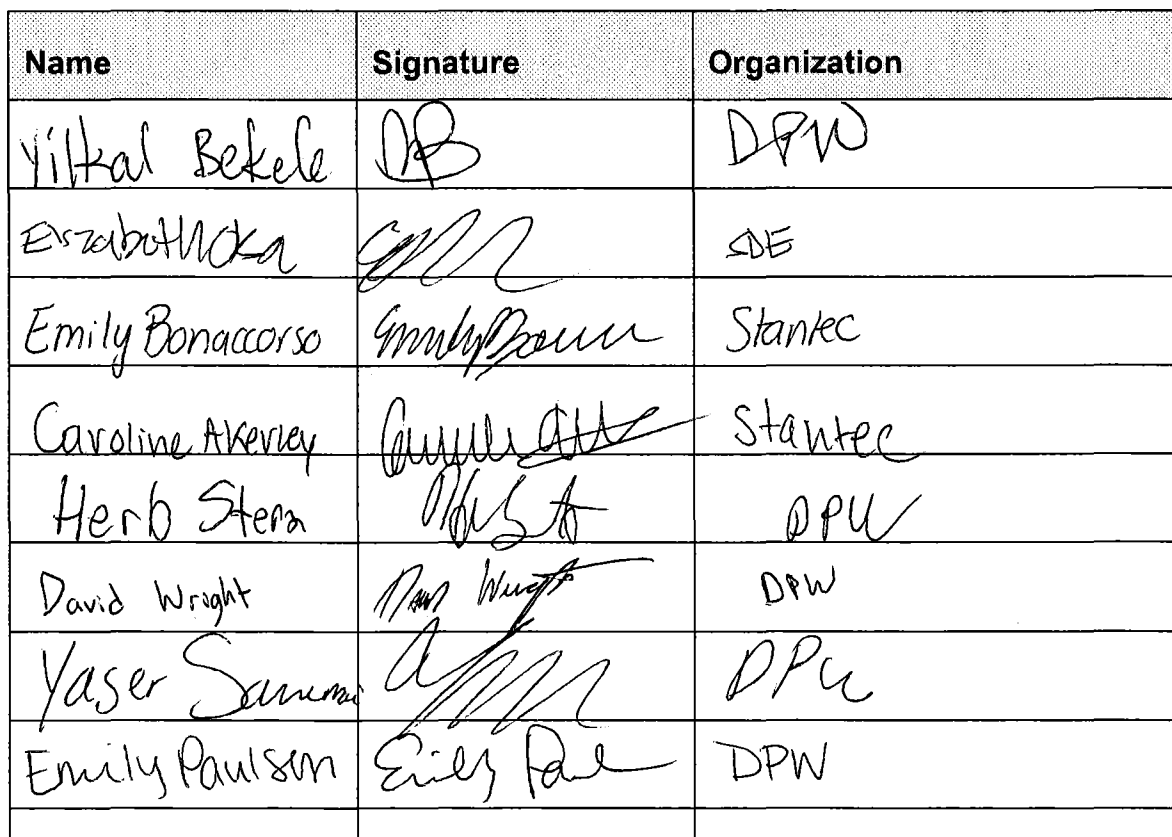 Name Signature Organization
Yilkal Bekele DPW
SDE
Emily Bonaccorso Emily Stantec
Caroline Akerley Stantec
Herb Stern DPW
David Wright Wright DPW
Yaser DPW
Emily Paulson Emily DPW